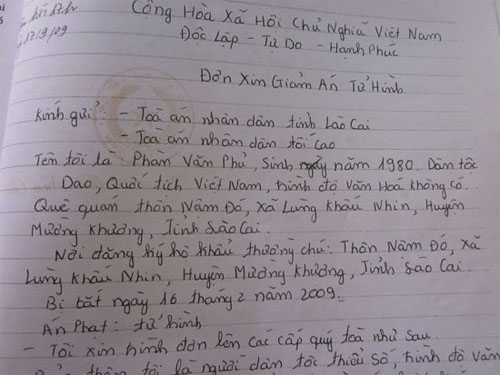 Cộng Hòa Xã Hội Chủ Nghĩa Việt Nam
Độc Lập - Tự Do - Hạnh Phúc
17/9/09
Đơn Xin Giảm Án Tử Hình
Kính gửi: - Toà án nhân dân tỉnh Lào Cai
- Toà án nhân dân tối cao
Tên tôi là: Phan Văn Phủ, Sinh ngày năm 1980. Dân tộc
Dao, Quốc tịch Việt Nam, trình độ Văn Hoá không có.
Quê quán thôn Nâm Đó, Xã Lùng Khấu Nhin, Huyện
Mường Khương, Tỉnh Lào Cai.
Nơi đăng ký hộ khẩu thường chú: Thôn Nâm Đó, Xã
Lùng Khấu Nhin, Huyện Mường Khương, Tỉnh Lào Cai.
Bị bắt ngày 16 tháng 2 năm 2009.
Án Phạt: tử hình
- Tôi xin trình đơn lên các cấp quý toà như sau.
thân tôi là người dân tộc thiểu số, trình độ văn